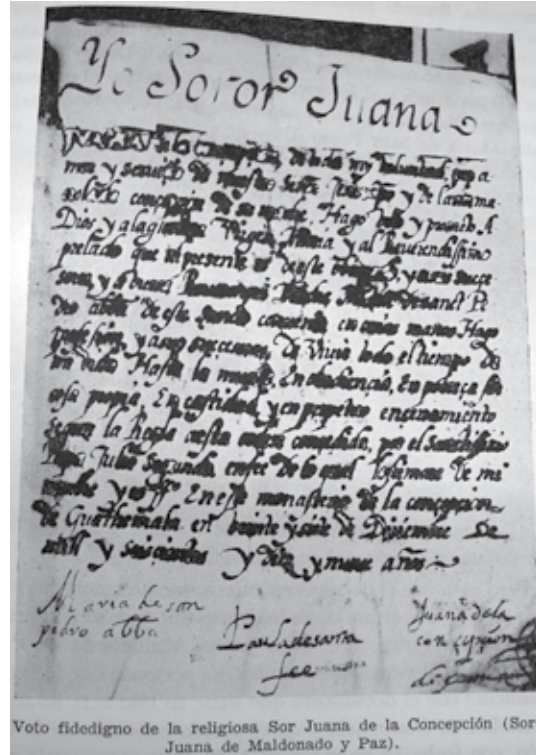 Yo Soror Juana
de la Concepción, de todas mi voluntad, por a
mor y servicio de nuestro señor
concepcion de su madre, Hago voto y prometo A
Dios y a la gloriosa Virgen Maria y al Reverendissimo
prelado que al presente es de este y a sus succe
sores, y a
dro abbª de este convento en cuias manos Hago
profession, y a sus successores, De Vivir todo el tiempo de
mi vida Hasta la muerte. En obediencia, En pobreça sin
cosa propia, En castidad, y en perpetuo encerramiento
segun la Regla a esta orden concedida, por el Sanctissimo
Papa Julio Segundo, en fee de lo qual lo firme de mi
nombre En este monasterio de la concepcion
de Guathemala en veinte y siete de Diziembre de
mill y seiscientos y diez y nueve años
Maria de san
pedro abba
Paula de santa
fee
Juana de la
concepcion
Voto fidedigno de la religiosa Sor Juana de la Concepción (Sor
Juana de Maldonado y Paz).